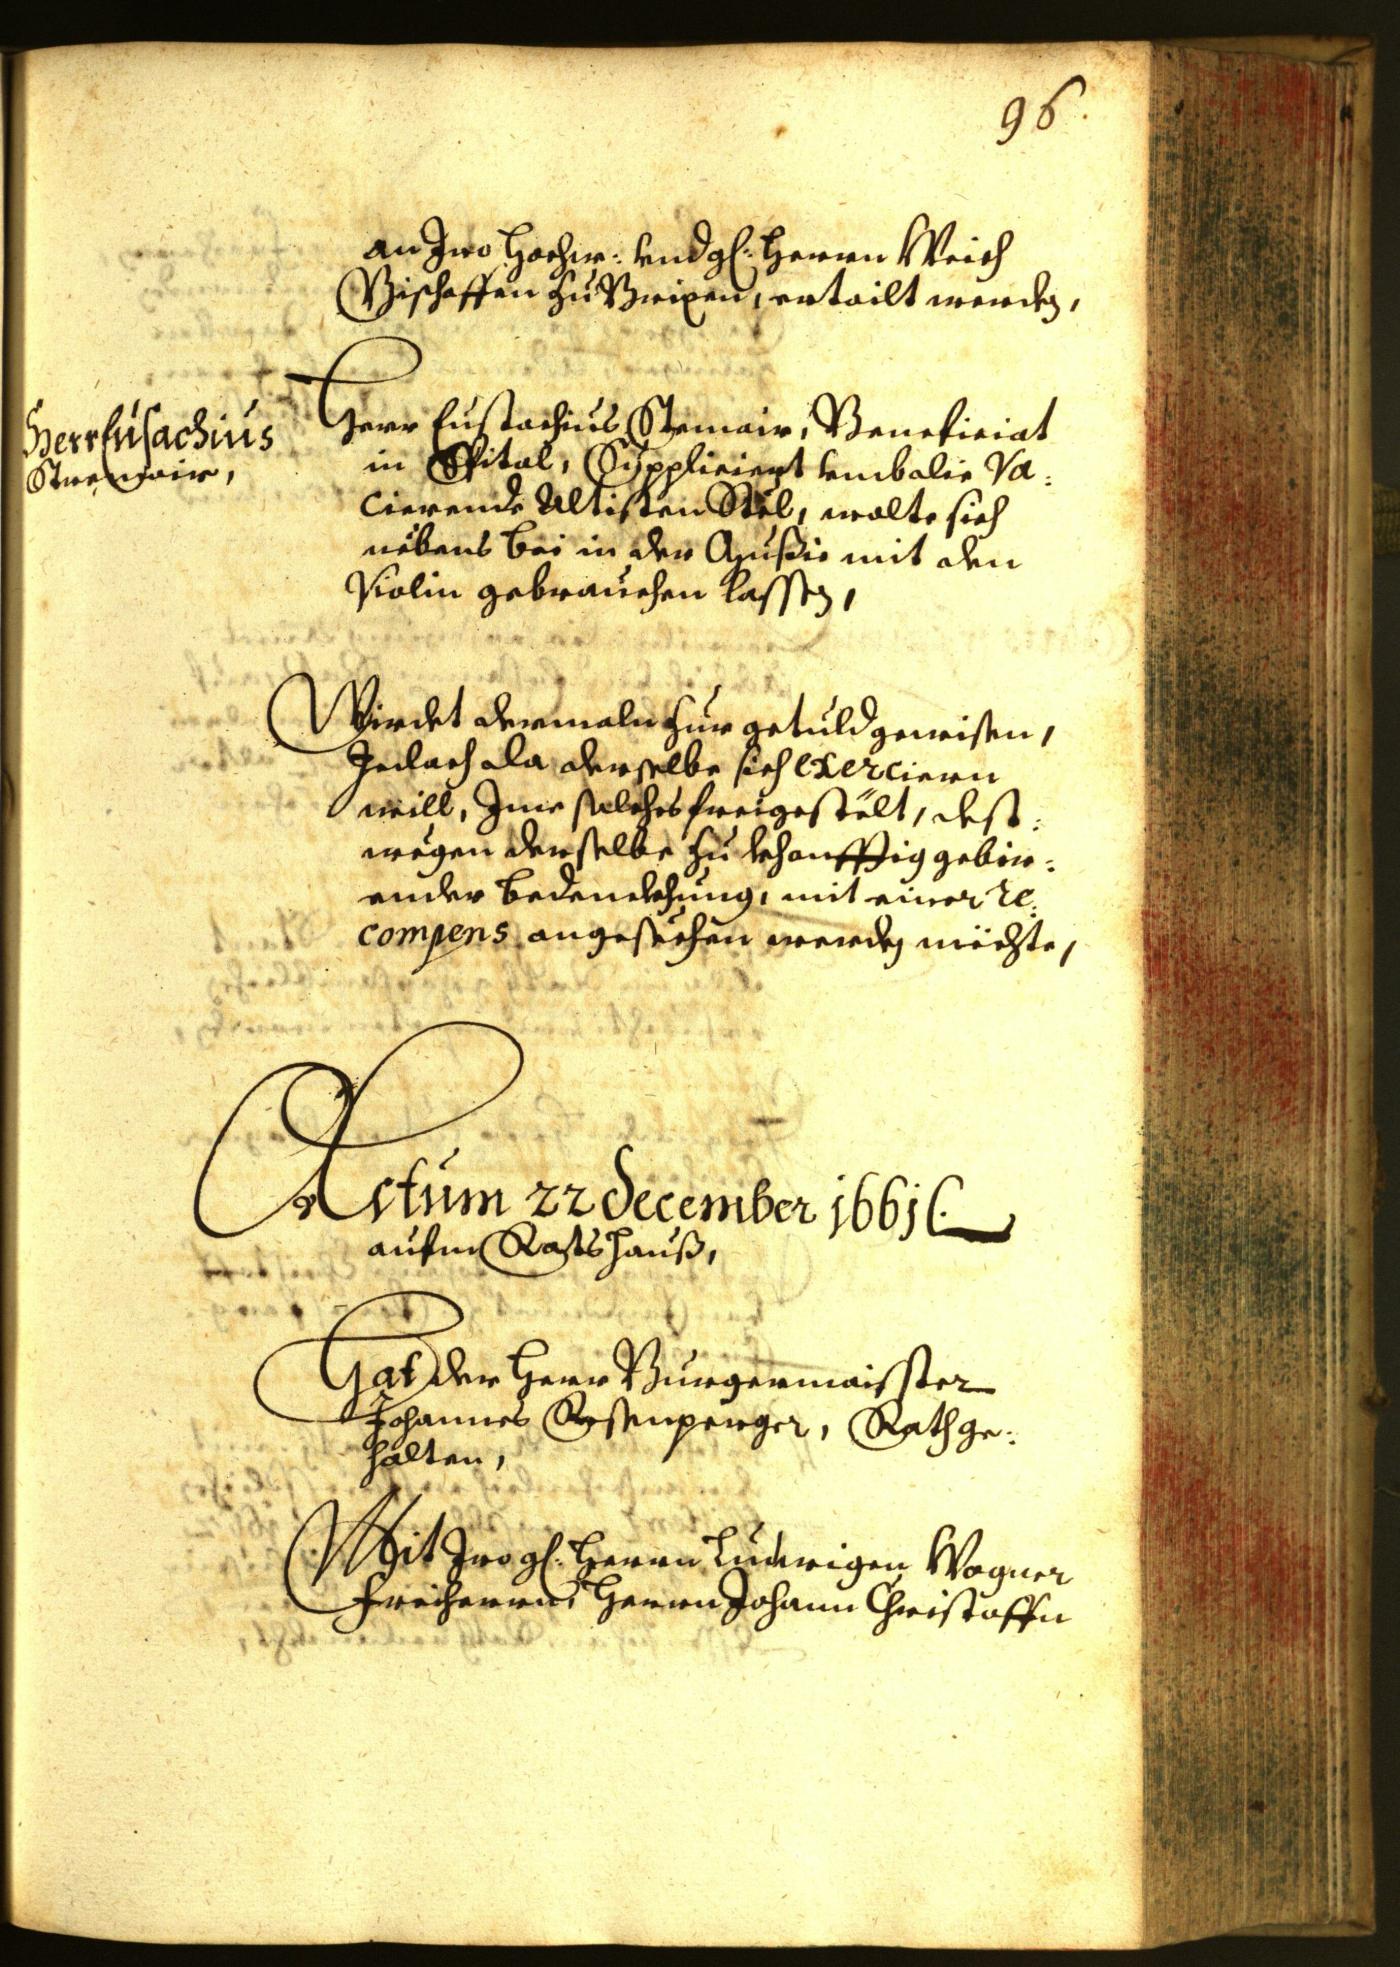 96.
an Iro Hochw: vnd gl: Herrn Weich
Bischoffen zu Brixen, ertailt werden,
Herr Eusachius
Stremair,
Herr Eustachius Stremair, Beneficiat
in Spital, Suppliciert umb alie Va:
cierende Altisten Stöl, wolte sich
nebens bei in der Musig mit den
Violin gebrauchen lassen,
Wirdet dermaln zur getuld gewisen,
Jedoch da derselbe sich exerciern
will, Ime solches freigestölt, dest:
wegen derselbe zu khonfftig gebir:
ender bedenckhung, mit einer re:
compens angesechen werden mechte,
Actum 22 december 1661
aufm Rathshauß,
Hat der Herr Burgermaisster
Johannes Rosenperger, Rath ge:
halten,
Mit Iro gl: Herrn Ludwigen Wagner
Freiherrn, Herrn Johann Christoffn